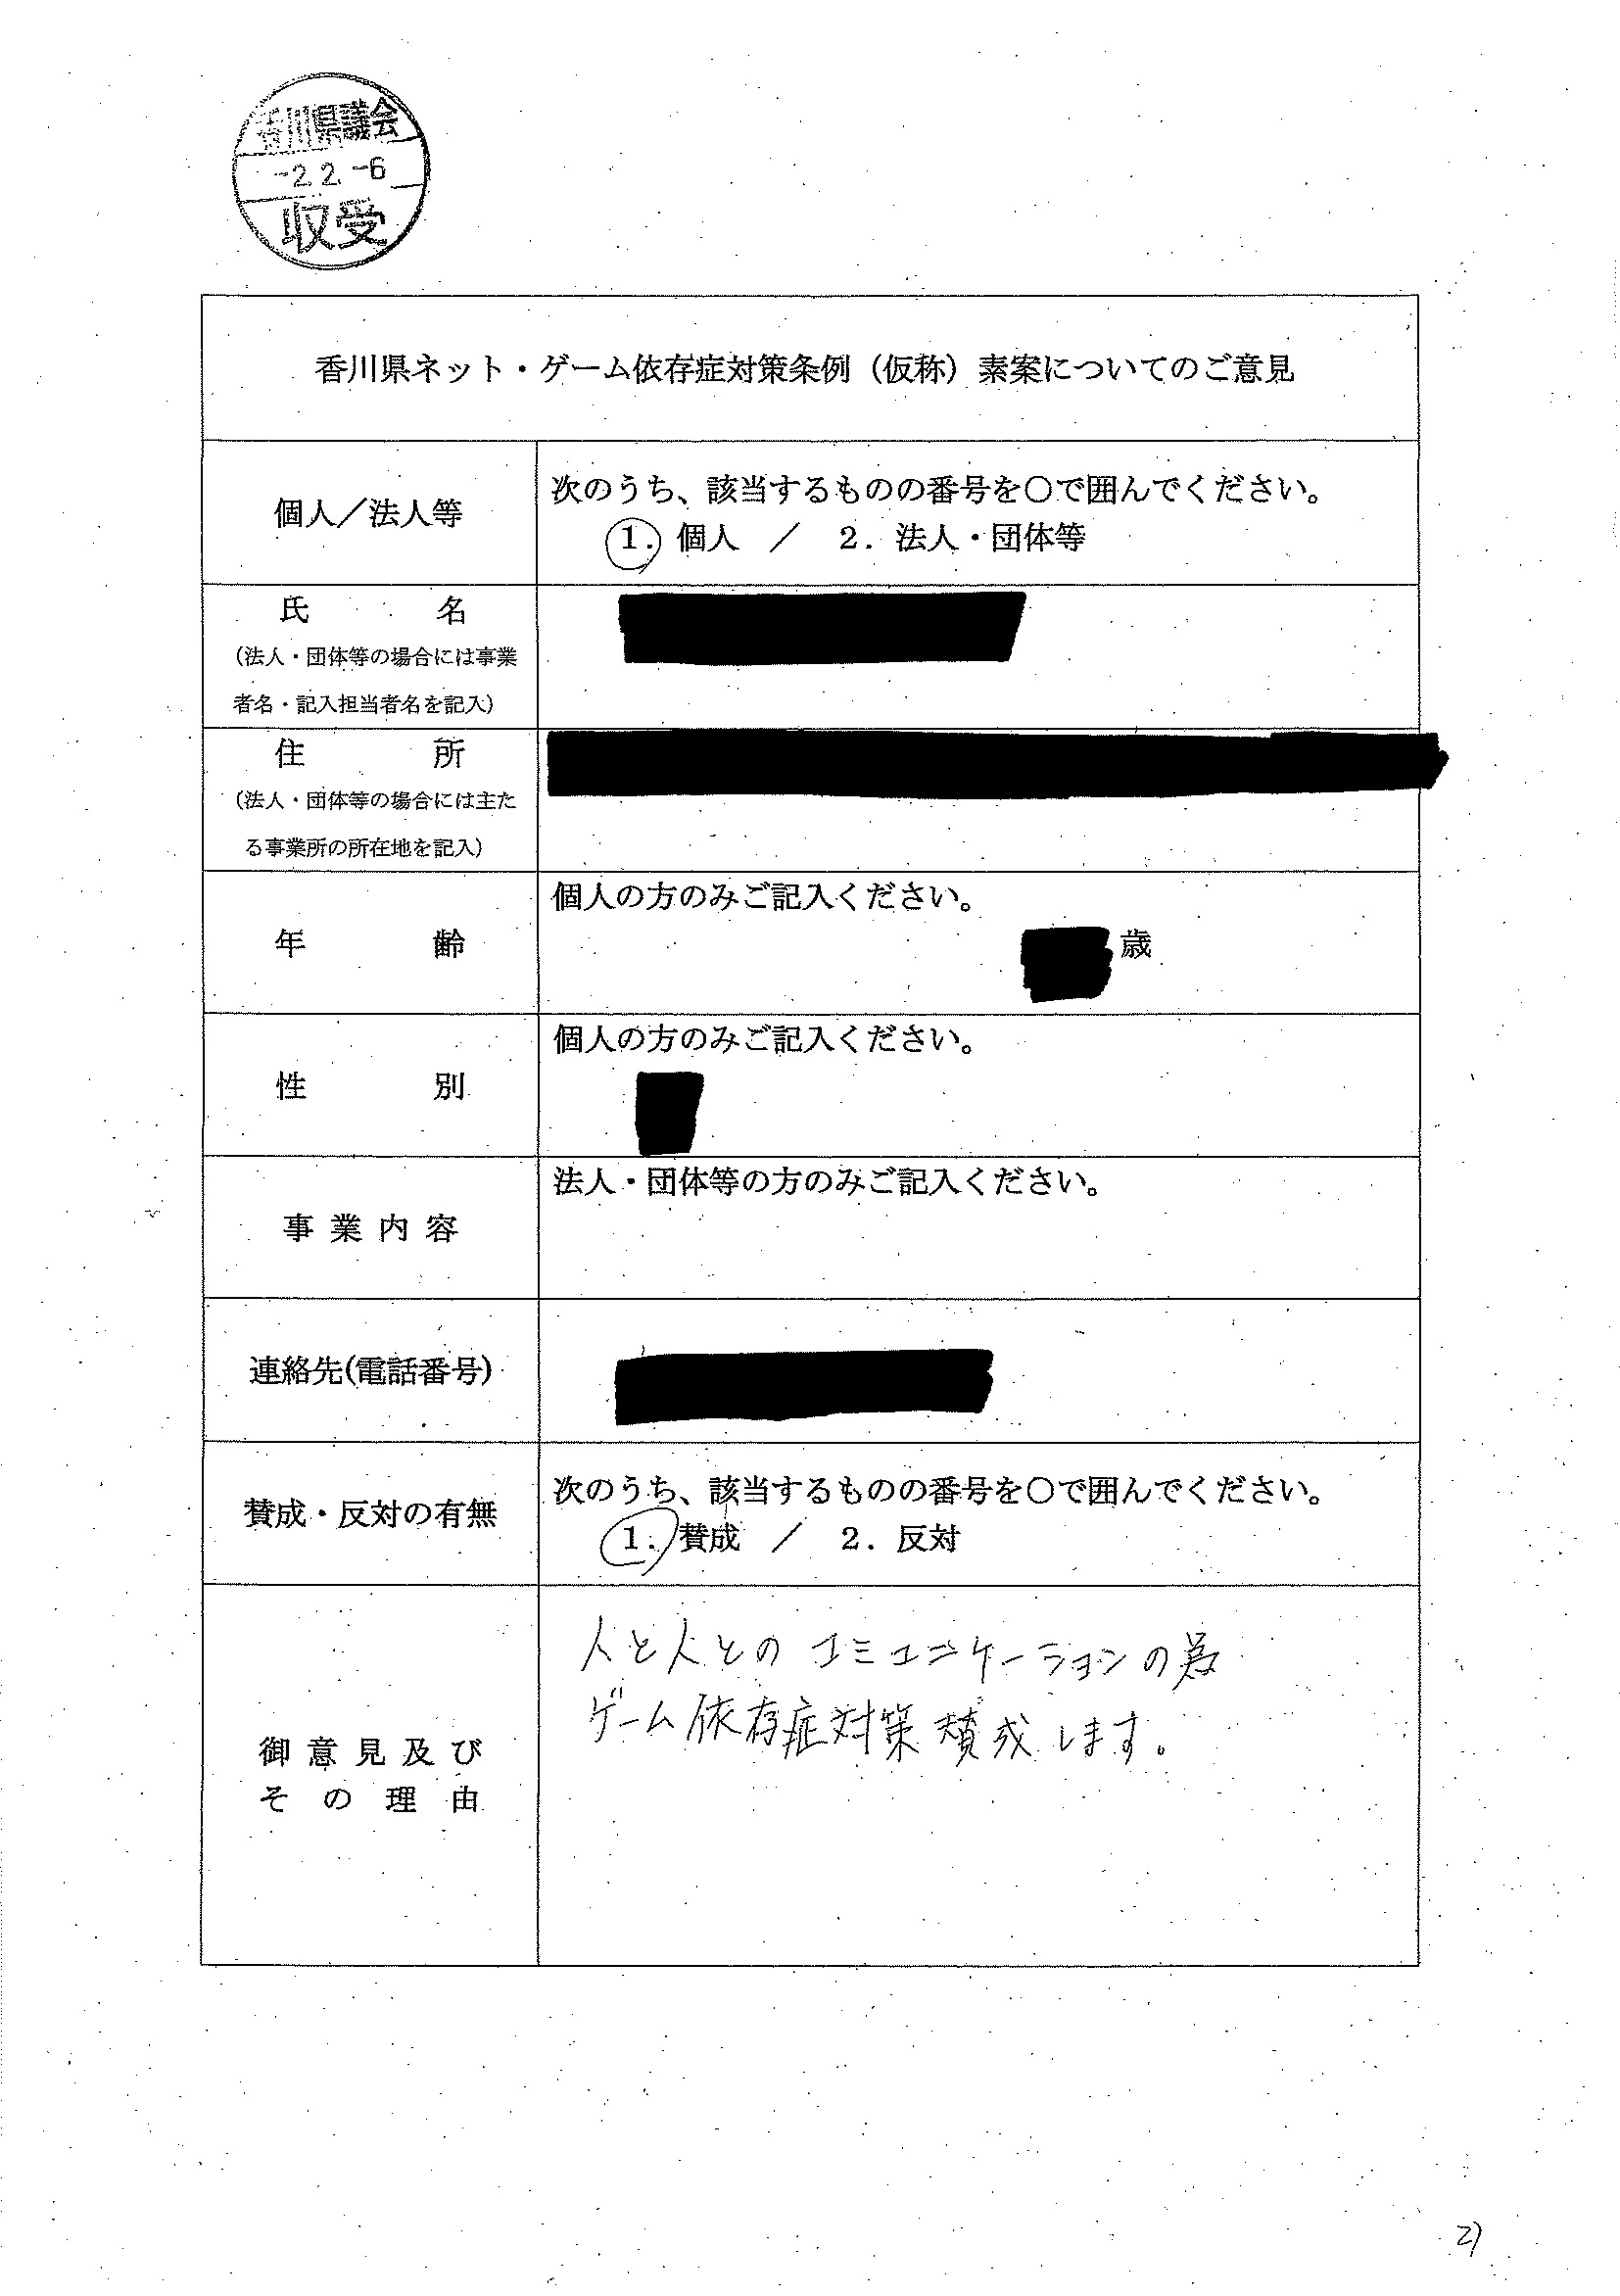 香川県議会
-2.2.-6
収受
香川県ネット・ゲーム依存症対策条例（仮称）素案についてのご意見
個人／法人等
次のうち、該当するものの番号を○で囲んでください。
1．個人 ／ 2．法人・団体等
氏 名
（法人・団体等の場合には事業
者名・記入担当者名を記入）
住 所
（法人・団体等の場合には主た
る事業所の所在地を記入）
年 齢
個人の方のみご記入ください。
歳
性 別
個人の方のみご記入ください。
事業内容
法人・団体等の方のみご記入ください。
連絡先(電話番号)
賛成・反対の有無
次のうち、該当するものの番号を○で囲んでください。
1．賛成 ／ 2．反対
御意見及び
その理由
人と人とのコミュニケーションの為
ゲーム依存症対策賛成します。